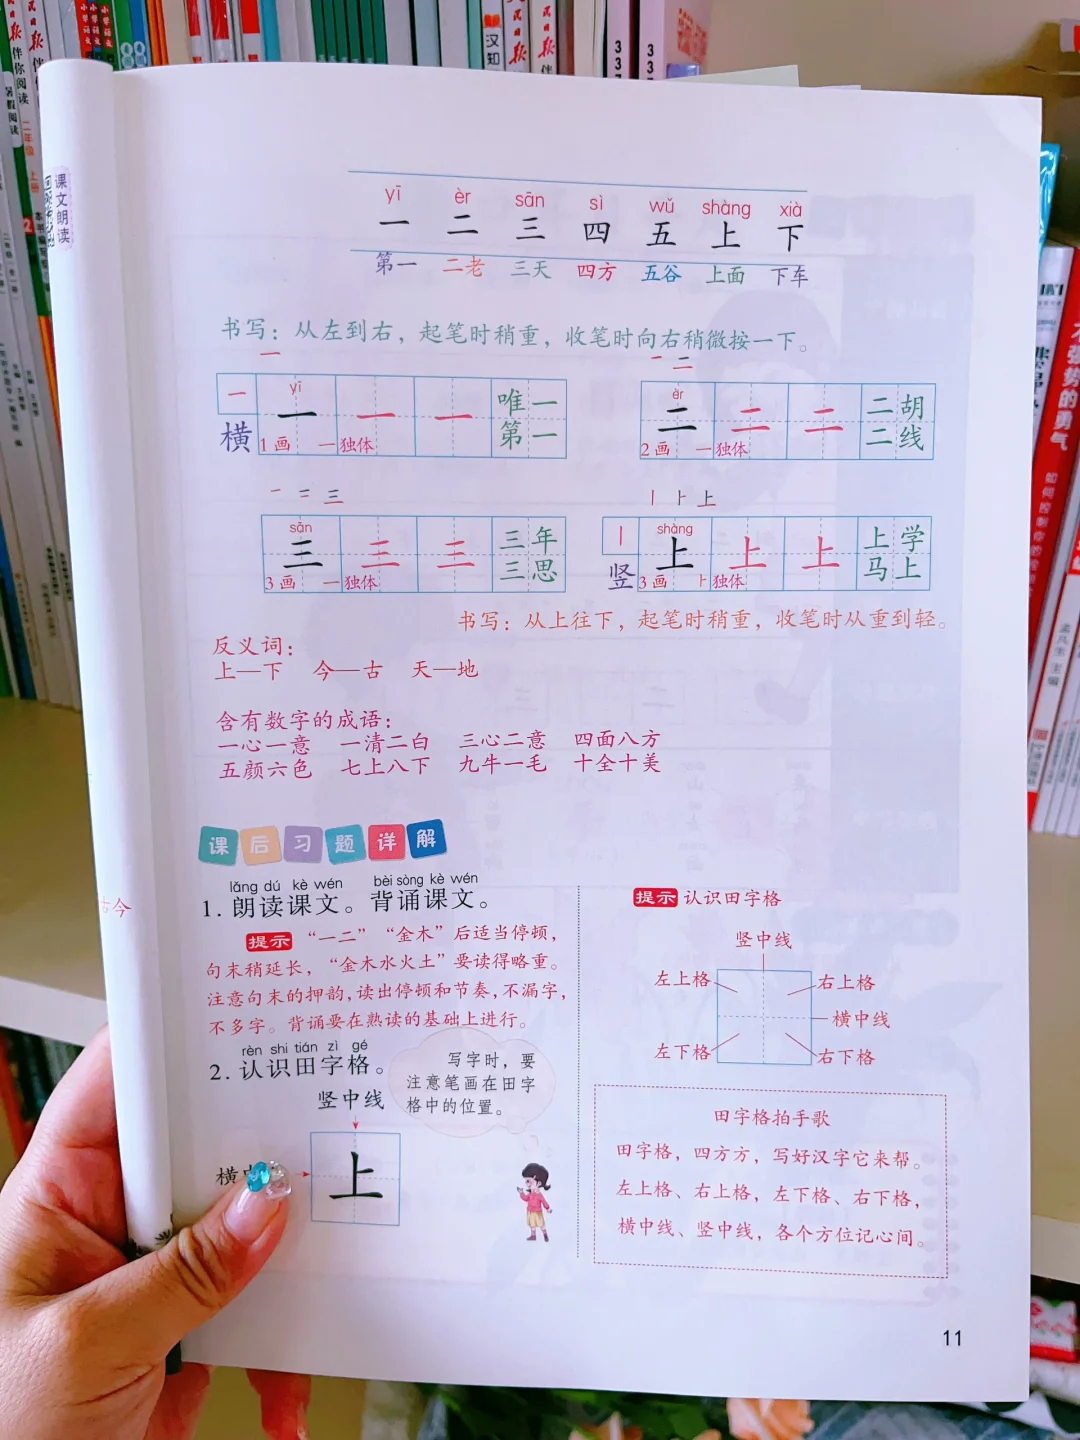 课文朗读
yī èr sān sì wǔ shàng xià
一 二 三 四 五 上 下
第一 二老 三天 四方 五谷 上面 下车
书写：从左到右，起笔时稍重，收笔时向右稍微按一下。
一
一 二
一 yī 一 一 一 唯一
横 1画 一 独体 第一
èr 二 二 二 二胡
2画 一 独体 二线
一 二 三
丨 ⺊ 上
sān 三 三 三 三年
3画 一 独体 三思
丨 shàng 上 上 上 上学
竖 3画 ⺊ 独体 马上
书写：从上往下，起笔时稍重，收笔时从重到轻。
反义词：
上—下 今—古 天—地
含有数字的成语：
一心一意 一清二白 三心二意 四面八方
五颜六色 七上八下 九牛一毛 十全十美
课后习题详解
lǎng dú kè wén bèi sòng kè wén
1. 朗读课文。背诵课文。
提示 “一二”“金木”后适当停顿，
句末稍延长，“金木水火土”要读得略重。
注意句末的押韵，读出停顿和节奏，不漏字，
不多字。背诵要在熟读的基础上进行。
rèn shi tián zì gé
2. 认识田字格。
写字时，要
注意笔画在田字
格中的位置。
竖中线
横中
上
提示 认识田字格
竖中线
左上格 右上格
横中线
左下格 右下格
田字格拍手歌
田字格，四方方，写好汉字它来帮。
左上格、右上格，左下格、右下格，
横中线、竖中线，各个方位记心间。
11
古今
伴你阅读
二年级 上册
汉知
如何控制你的
的勇气